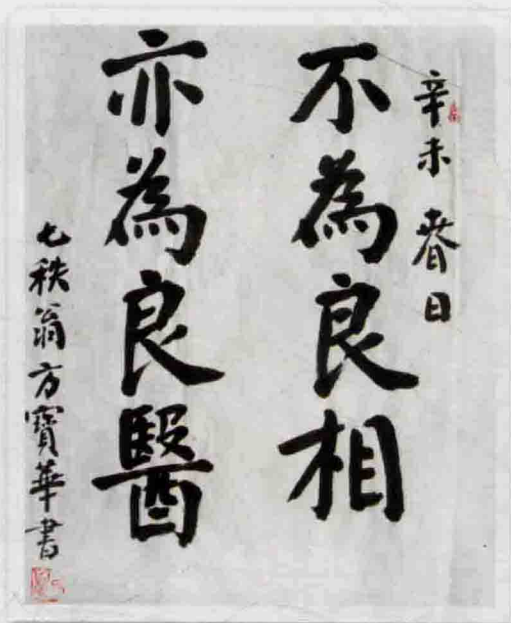 辛未春日
不為良相
亦為良醫
七秩翁方寶華書